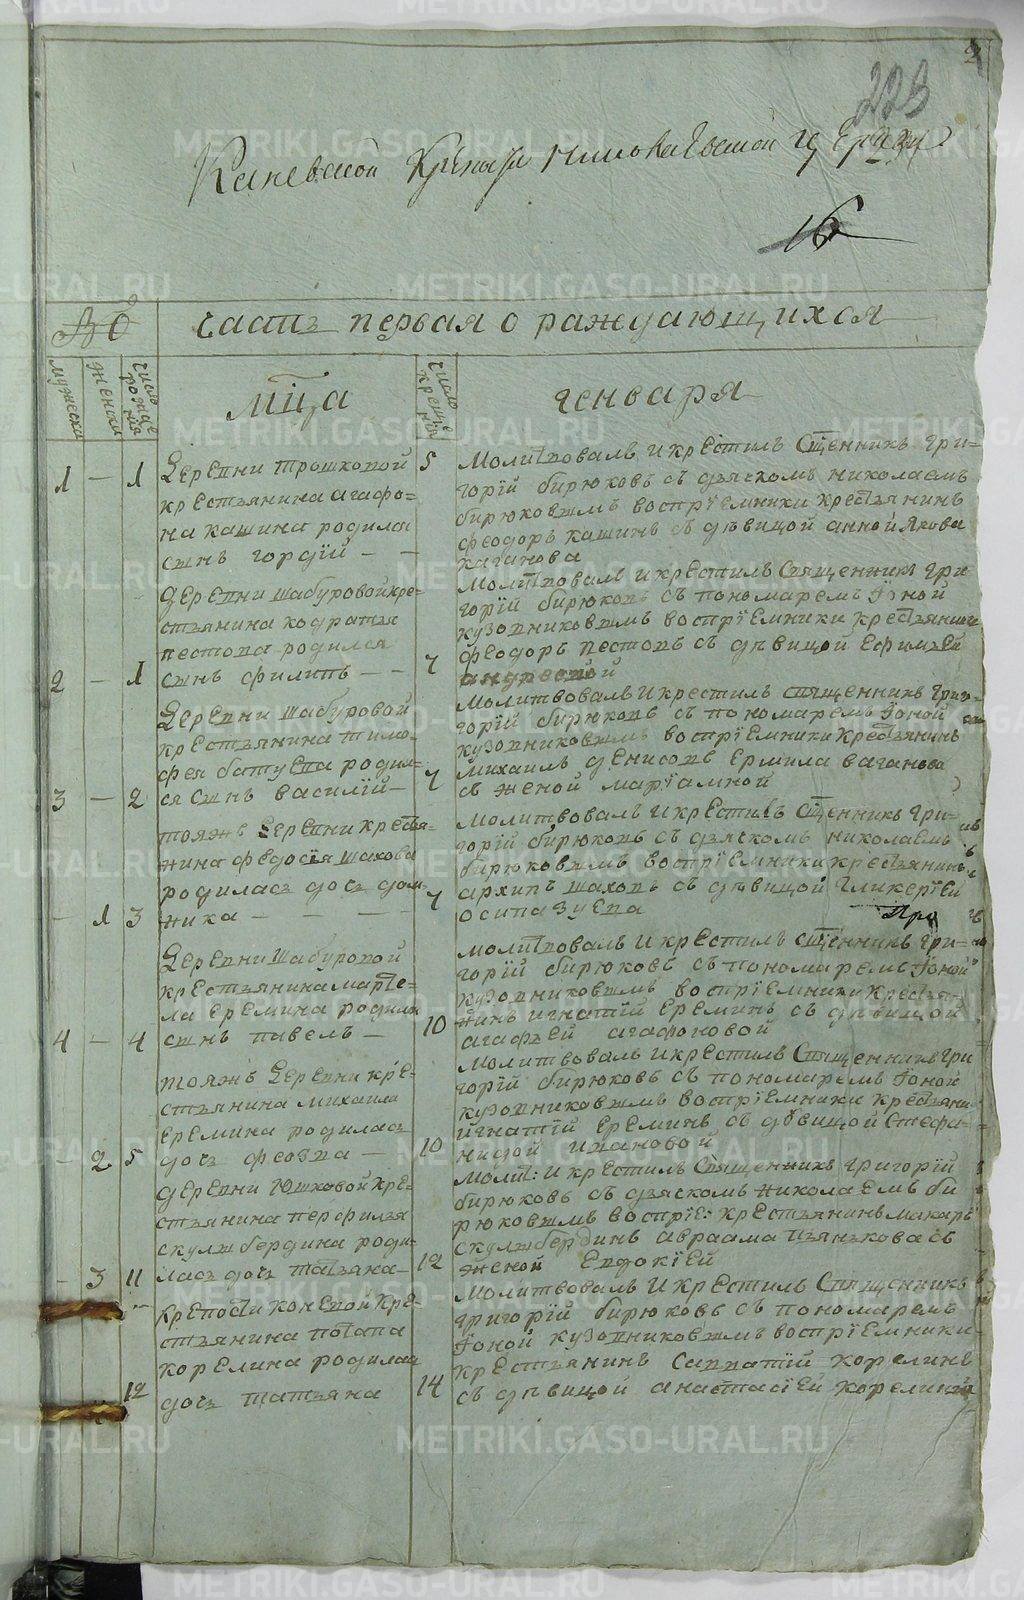 2
223
Каневской Крепости Николаевской церкви
16
№
часть первая о раждающихся
мужески
женски
число рожде нія
мца
число креще нія
генваря
1 — 1
деревни трошковой
крестьянина агафо=
на кашина родился
сынъ гордій — —
5
Молитвовалъ И крестилъ Сщенникъ гри=
горій бирюковъ съ дьячкомъ николаемъ
бирюковымъ воспріемники крестьянинъ
феодоръ кашинъ съ дѣвицой анной Якова
ваганова
деревни шабуровой кре=
стьянина кодратья
пестова родился
2 — 1
сынъ филипъ — —
7
Молитвовалъ и крестилъ Священникъ гри
горій бирюковъ съ пономаремъ Іоной
кузовниковымъ воспріемники крестьянинъ
феодоръ пестовъ съ дѣвицой Ефимьей
андреевой
деревни шабуровой
крестьянина тимо=
фея батуева родил=
3 — 2
ся сынъ василій —
7
Молитвовалъ И крестилъ священникъ григо=
горій бирюковъ съ пономаремъ Іоной
кузовниковымъ воспріемники Крестьянинъ
Михаилъ денисовъ Ермила ваганова
съ женой маріамной
тояжъ деревни крестья=
нина федосія шахова
родилась дочь дом=
— 1 3
ника — — — —
7
молитвовалъ И крестилъ сщенникъ гри=
горій бирюковъ съ дьячкомъ николаемъ
бирюковымъ воспріемники крестьянинъ
архипъ шаховъ съ дѣвицой гликеріей
осипа зуева
деревни шабуровой
крестьянина марте=
ла еремина родился
4 — 4
сынъ павелъ —
10
молитвовалъ И крестилъ сщенникъ гри=
горій бирюковъ съ пономаремъ Іоной
кузовниковымъ воспріемники крестья=
нинъ игнатій еремин съ дѣвицой
агафьей агафоновой
тояжъ деревни кре=
стьянина михаила
еремина родилась
— 2 5
дочь феозва —
10
молитвовалъ И крестилъ Священникъ гри
горій бирюковъ съ пономаремъ Іоной
кузовниковымъ воспріемники крестьяни
игнатій ереминъ съ дѣвицой стефа=
нидой ивановой
деревни Юшковой кре=
стьянина перфилья
скулыбердина роди=
— 3 11
лась дочь татьяна —
12
молит: И крестилъ Священникъ григорій
бирюковъ съ дьячкомъ николаемъ би
рюковымъ воспріе: крестьянинъ макаръ
скулыбердинъ авраама пьянкова съ
женой Евдокіей
крепости коневой кре=
стьянина потапа
корелина родилась
12
дочь татьяна
14
молитвовалъ И крестилъ Священникъ
григорій бирюковъ съ пономаремъ
Іоной кузовниковымъ воспріемники
крестьянинъ савватій корелинъ
съ дѣвицой анастасіей корелиной
METRIKI.GASO-URAL.RU